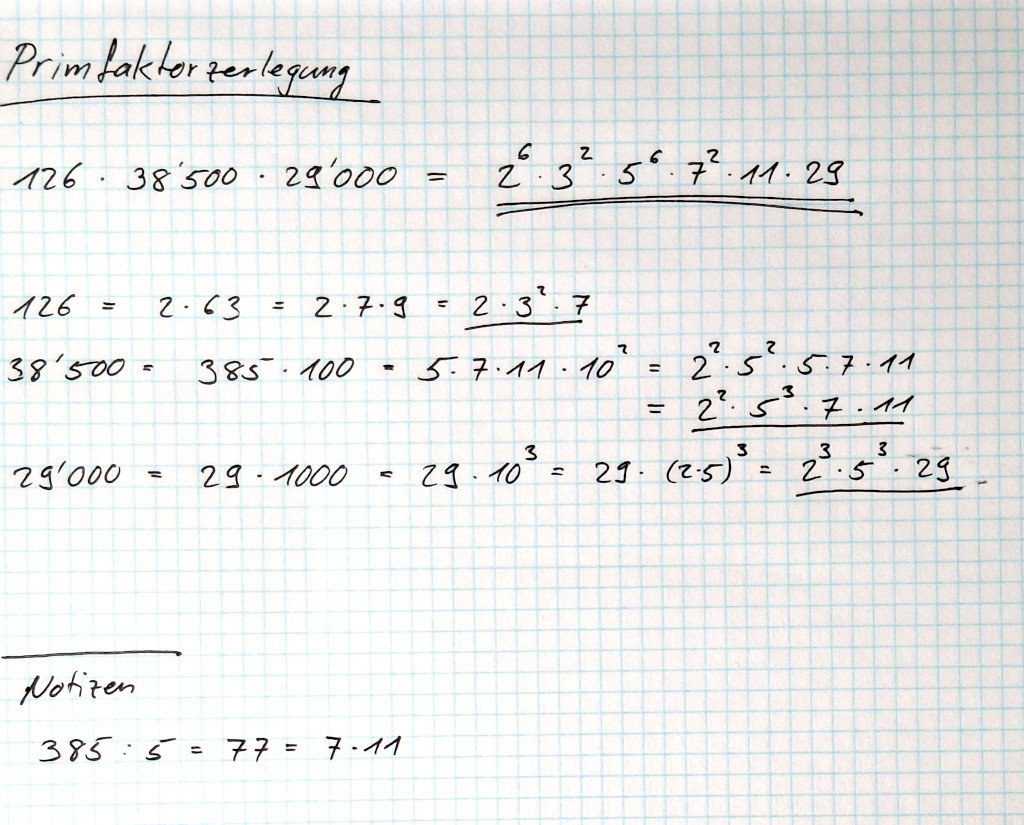 Primfaktorzerlegung
126 · 38'500 · 29'000 = 2⁶ · 3² · 5⁶ · 7² · 11 · 29
126 = 2 · 63 = 2 · 7 · 9 = 2 · 3² · 7
38'500 = 385 · 100 = 5 · 7 · 11 · 10² = 2² · 5² · 5 · 7 · 11
= 2² · 5³ · 7 · 11
29'000 = 29 · 1000 = 29 · 10³ = 29 · (2·5)³ = 2³ · 5³ · 29
Notizen
385 : 5 = 77 = 7 · 11